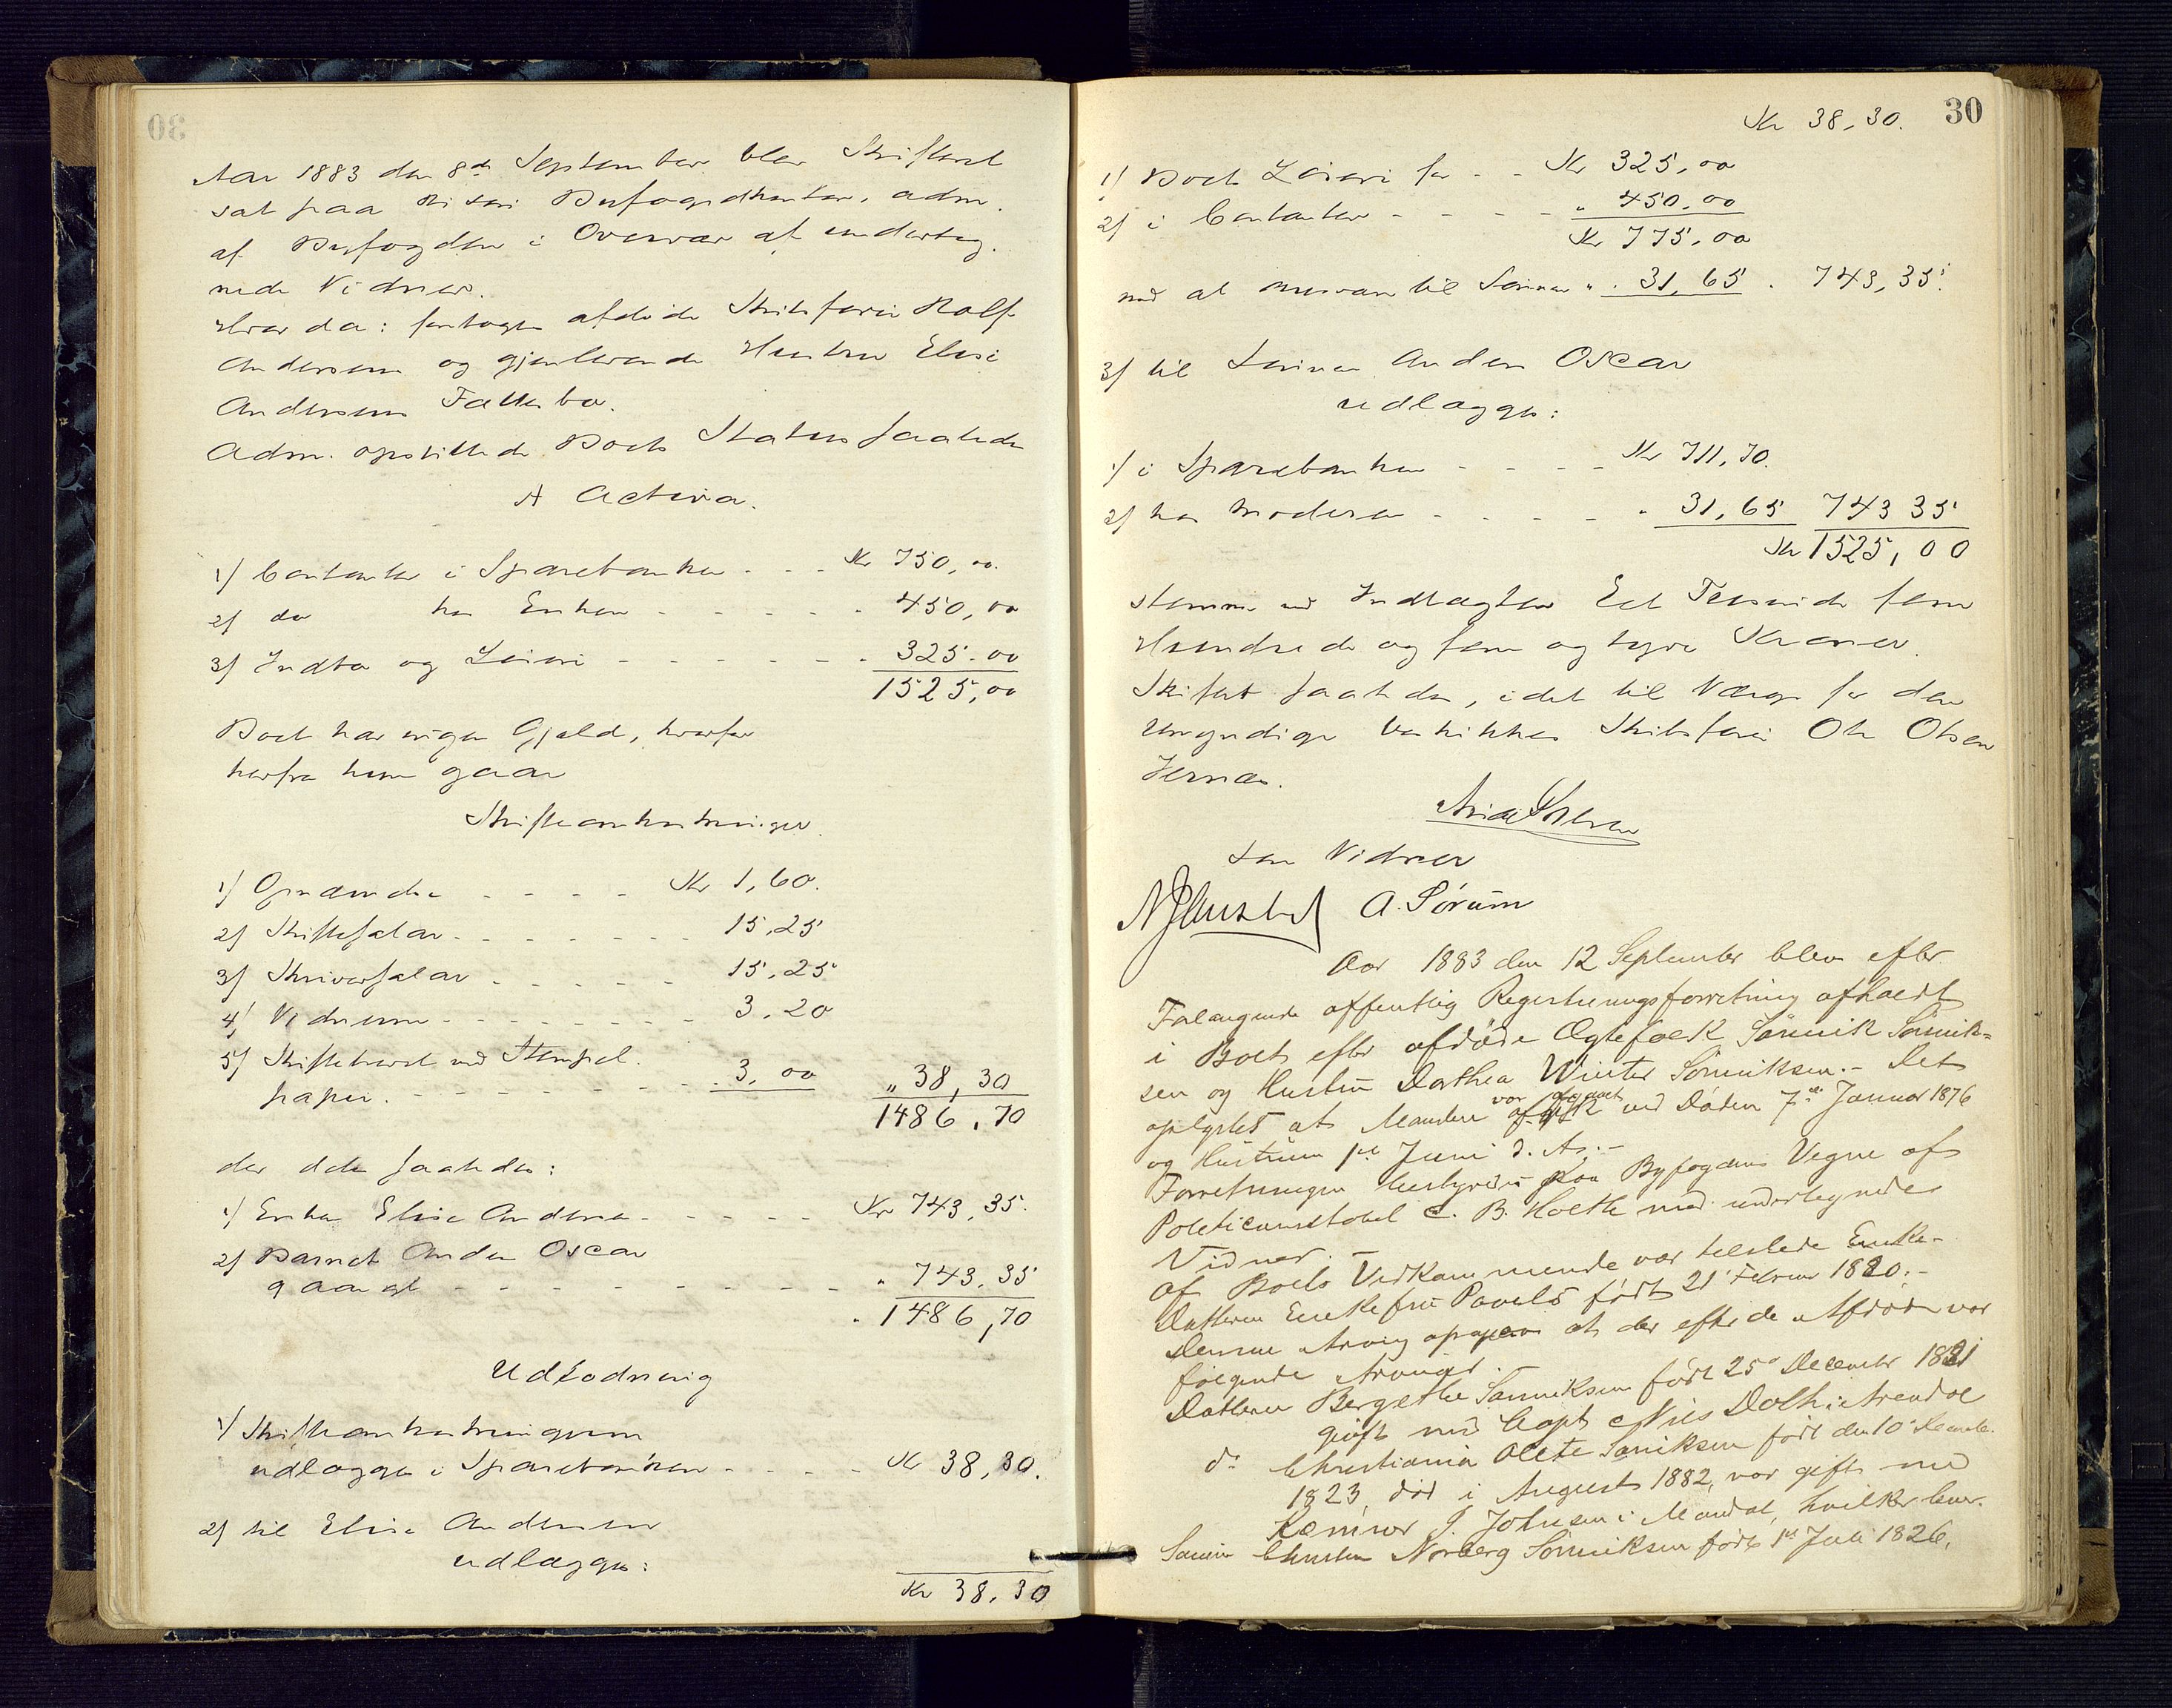 Aar 1883 den 8de September blev Skifteret
sat paa Risør Byfogedkontor, adm.
af Byfogden i Overvær af underteg-
nede Vidner.
Hvor da: foretoges afdøde Skibsfører Rolf
Andersens og gjenlevende Hustru Elise
Andersens Fællesbo.
Adm. opstillede Boets Status saaledes
A Activa.
1) Contanter i Sparebanken - - - Kr 750,00.
2) do hos Enken - - - - - 450,00
3) Indbo og Løsøre - - - - - - - 325.00
1525,00
Boet har ingen Gjæld, hvorfor
herfra kun gaar
Skifteomkostninger.
1) Opnævnelse - - - - Kr 1,60.
2) Skiftesalær - - - - - - - 15,25
3) Skriversalær - - - - - 15,25
4) Vidnerne - - - - - - - - 3.20
5) Skiftebrevet med Stempel-
papir. - - - - - - - - - 3,00 " 38,30
1486,70
der deles saaledes:
1) Enken Elise Andersen - - - - - Kr 743,35.
2) Barnet Anders Oscar
- - - - - - - - - " 743.35
" 1486,70
Udlodning
1) Skifteomkostningerne
udlægges i Sparebanken - - - - Kr 38,30.
2) til Elise Andersen
udlægges:
Kr 38,30
30
Kr 38,30.
1) Boets Løsøre for - - Kr 325,00
2) i Contanter - - - - - " 450,00
Kr 775,00
med at svare til Sønnen " 31,65 . 743,35.
3) til Sønnen Anders Oscar
udlægges:
1) i Sparebanken - - - - Kr 711,70.
2) hos Moderen - - - - - " 31,65 743 35
Kr 1525,00
stemmer med Indtægten Et Tusinde fem
Hundrede og fem og tyve Kroner.
Skiftet saaledes, idet til Værge for den
Umyndige beskikkes Skibsfører Ole Olsen
Jernæs.
som Vidner
A. Sørum
Aar 1883 den 12 September blev efter
Forlangende offentlig Registreringsforretning afholdt
i Boet efter afdøde Ægtefolk Sønnik Sønnik-
sen og Hustru Dorthea Winter Sønniksen. - Det
oplystes at Manden var afgaaet ved Døden 7de Januar 1876
og Hustruen 1ste Juni d. A. -
Forretningen bestyredes paa Byfogdens Vegne af
Politiconstabel C. B. Holte med undertegnede
Vidner. -
Af Boets Vedkommende var tilstede Enke-
Datteren Enkefru Povels født 21 Februar 1820. -
Denne Arving opgav at der efter de Afdøde var
følgende Arvinger.
Datteren Bergethe Sønniksen født 25de December 1821
gift med Capt. Niels Dedh i Arendal
do Christiania Olete Sønniksen født den 10de Decembr.
1823, død i August 1882, var gift med
Kæmner J. Johnsen i Mandal, hvilken lever.
Sønnen Christen Norberg Sønniksen født 1ste Juli 1826.